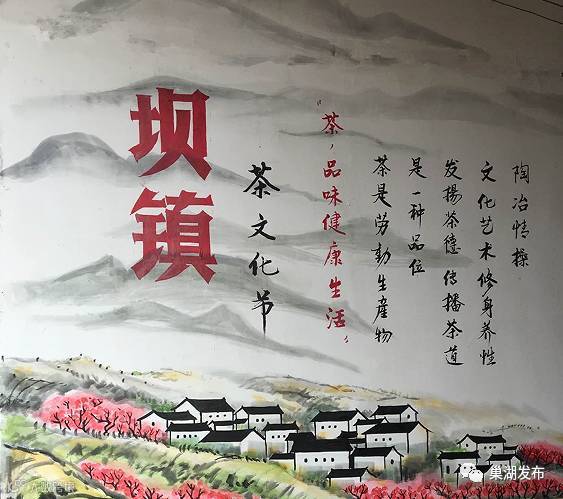 坝镇
茶文化节
“茶，品味健康生活”
茶是劳動生産物
是一种品位
发揚茶德 传播茶道
文化艺术修身养性
陶冶情操
巢湖发布